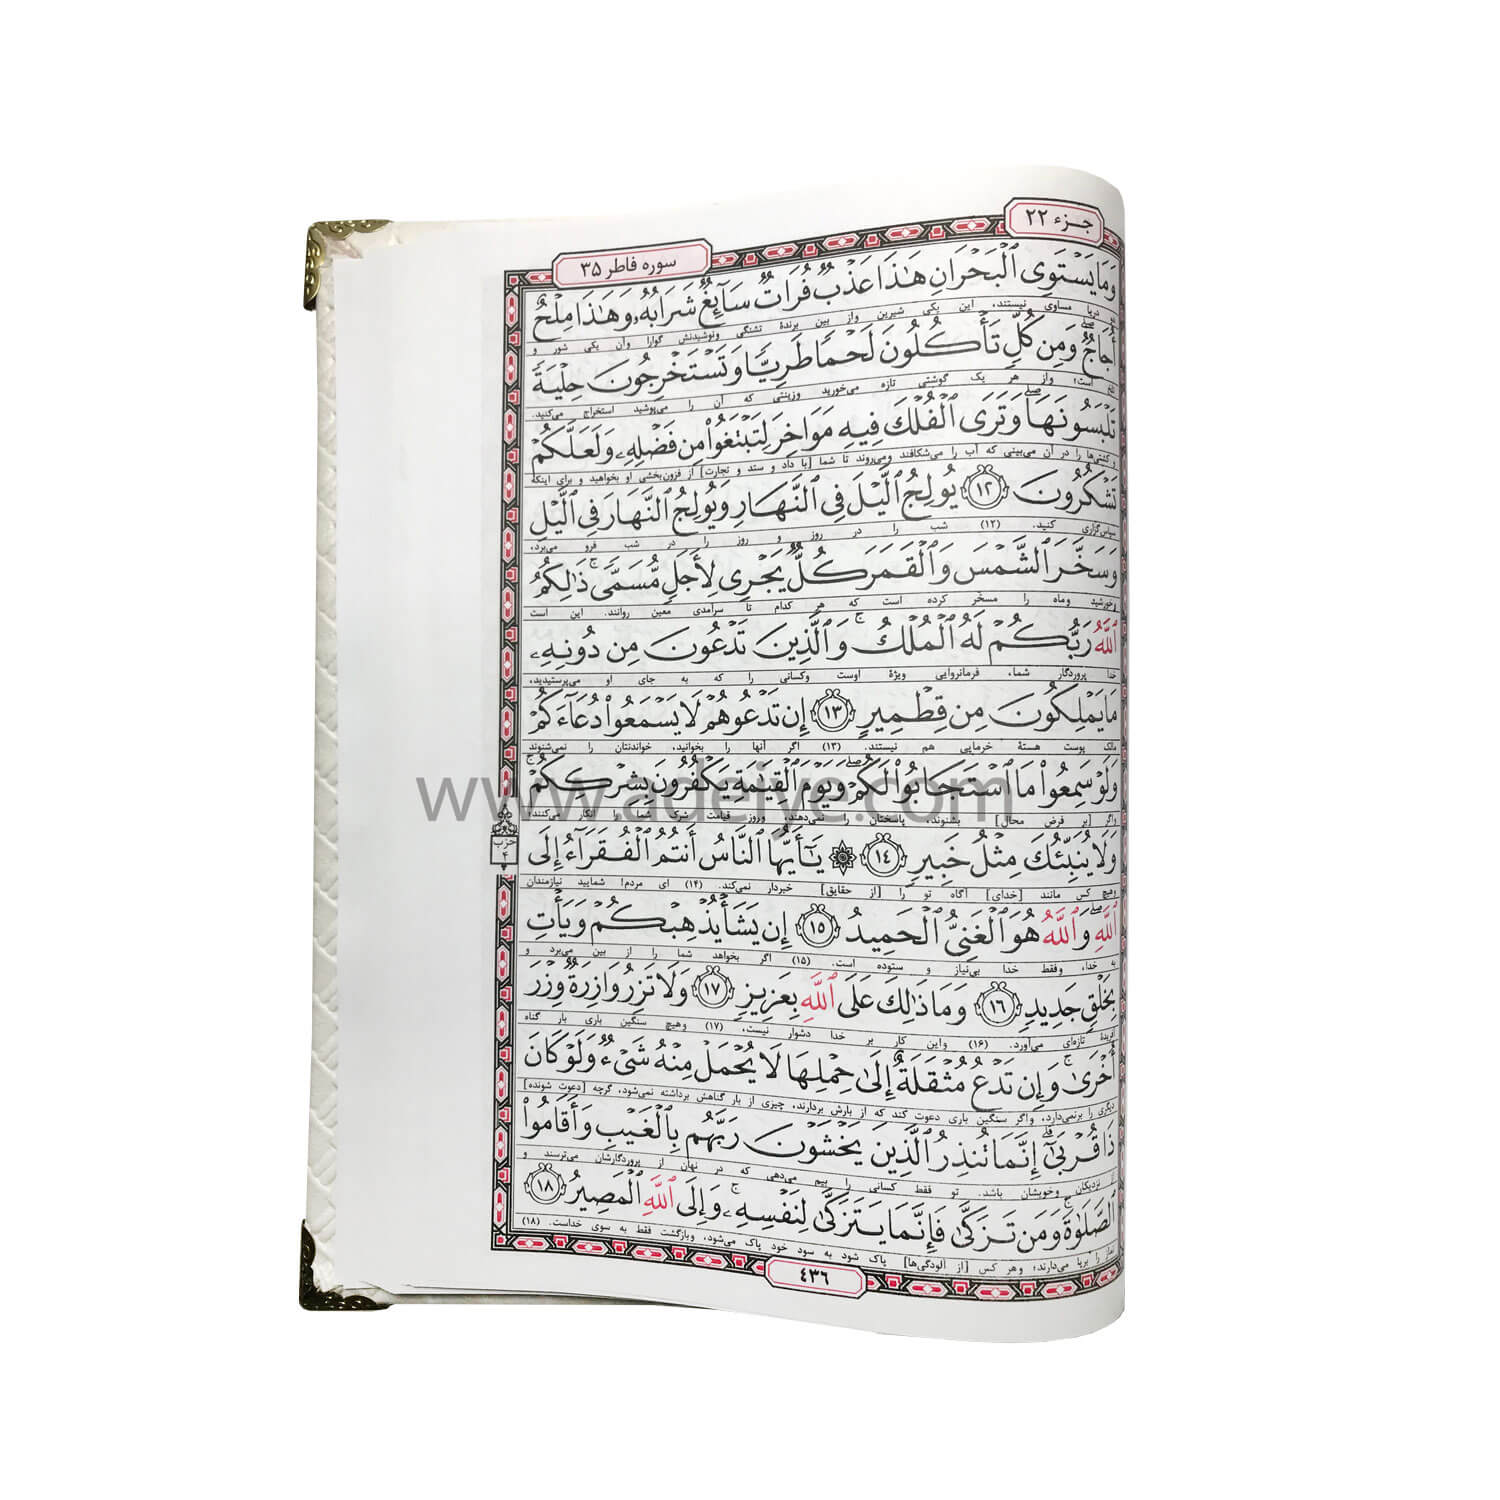 جـزء ۲۲
سوره فاطر ۳۵
وَمَا يَسْتَوِي ٱلْبَحْرَانِ هَٰذَا عَذْبٌ فُرَاتٌ سَآئِغٌ شَرَابُهُۥ وَهَٰذَا مِلْحٌ
دو دریا مساوی نیستند، این یکی شیرین واز بین برندهٔ تشنگی ونوشیدنش گوارا وآن یکی شور و
أُجَاجٌ ۖ وَمِن كُلٍّ تَأْكُلُونَ لَحْمًا طَرِيًّا وَتَسْتَخْرِجُونَ حِلْيَةً
تلخ است؛ واز هر یک گوشتی تازه می‌خورید وزینتی که آن را می‌پوشید استخراج می‌کنید.
تَلْبَسُونَهَا ۖ وَتَرَى ٱلْفُلْكَ فِيهِ مَوَاخِرَ لِتَبْتَغُوا۟ مِن فَضْلِهِۦ وَلَعَلَّكُمْ
و کشتی‌ها را در آن می‌بینی که آب را می‌شکافند ومی‌روند تا شما [با داد و ستد و تجارت] از فزون‌بخشی او بخواهید و برای اینکه
تَشْكُرُونَ ۱۲ يُولِجُ ٱلَّيْلَ فِي ٱلنَّهَارِ وَيُولِجُ ٱلنَّهَارَ فِي ٱلَّيْلِ
سپاس‌گزاری کنید. (۱۲) شب را در روز و روز را در شب فرو می‌برد،
وَسَخَّرَ ٱلشَّمْسَ وَٱلْقَمَرَ كُلٌّ يَجْرِي لِأَجَلٍ مُّسَمًّى ۚ ذَٰلِكُمُ
وخورشید وماه را مسخّر کرده است که هر کدام تا سرآمدی معین روانند. این است
ٱللَّهُ رَبُّكُمْ لَهُ ٱلْمُلْكُ ۚ وَٱلَّذِينَ تَدْعُونَ مِن دُونِهِۦ
خدا پروردگار شما، فرمانروایی ویژهٔ اوست وکسانی را که به جای او می‌پرستیدید،
مَا يَمْلِكُونَ مِن قِطْمِيرٍ ۱۳ إِن تَدْعُوهُمْ لَا يَسْمَعُوا۟ دُعَآءَكُمْ
مالک پوست هستهٔ خرمایی هم نیستند. (۱۳) اگر آنها را بخوانید، خواندنتان را نمی‌شنوند
وَلَوْ سَمِعُوا۟ مَا ٱسْتَجَابُوا۟ لَكُمْ ۖ وَيَوْمَ ٱلْقِيَٰمَةِ يَكْفُرُونَ بِشِرْكِكُمْ ۚ
واگر [بر فرض محال] بشنوند، پاسختان را نمی‌دهند، وروز قیامت شرک شما را انکار می‌کنند؛
www.adeiye.com
حزب
۴
وَلَا يُنَبِّئُكَ مِثْلُ خَبِيرٍ ۱۴ يَٰٓأَيُّهَا ٱلنَّاسُ أَنتُمُ ٱلْفُقَرَآءُ إِلَى
وهیچ کس مانند [خدای] آگاه تو را [از حقایق] خبردار نمی‌کند. (۱۴) ای مردم! شمایید نیازمندان
ٱللَّهِ ۖ وَٱللَّهُ هُوَ ٱلْغَنِيُّ ٱلْحَمِيدُ ۱۵ إِن يَشَأْ يُذْهِبْكُمْ وَيَأْتِ
به خدا، وفقط خدا بی‌نیاز و ستوده است. (۱۵) اگر بخواهد شما را از بین می‌برد و
بِخَلْقٍ جَدِيدٍ ۱۶ وَمَا ذَٰلِكَ عَلَى ٱللَّهِ بِعَزِيزٍ ۱۷ وَلَا تَزِرُ وَازِرَةٌ وِزْرَ
آفریدهٔ تازه‌ای می‌آورد. (۱۶) واین کار بر خدا دشوار نیست، (۱۷) وهیچ سنگین باری بار گناه
أُخْرَىٰ ۚ وَإِن تَدْعُ مُثْقَلَةٌ إِلَىٰ حِمْلِهَا لَا يُحْمَلْ مِنْهُ شَيْءٌ وَلَوْ كَانَ
دیگری را برنمی‌دارد، واگر سنگین باری دعوت کند که از بارش بردارند، چیزی از بار گناهش برداشته نمی‌شود، گرچه [دعوت شونده]
ذَا قُرْبَىٰٓ ۗ إِنَّمَا تُنذِرُ ٱلَّذِينَ يَخْشَوْنَ رَبَّهُم بِٱلْغَيْبِ وَأَقَامُوا۟
از نزدیکان وخویشان باشد. تو فقط کسانی را بیم می‌دهی که در نهان از پروردگارشان می‌ترسند و
ٱلصَّلَوٰةَ ۚ وَمَن تَزَكَّىٰ فَإِنَّمَا يَتَزَكَّىٰ لِنَفْسِهِۦ ۚ وَإِلَى ٱللَّهِ ٱلْمَصِيرُ ۱۸
نماز را برپا می‌دارند؛ وهر کس [از آلودگی‌ها] پاک شود به سود خود پاک می‌شود، وبازگشت فقط به سوی خداست. (۱۸)
٤٣٦